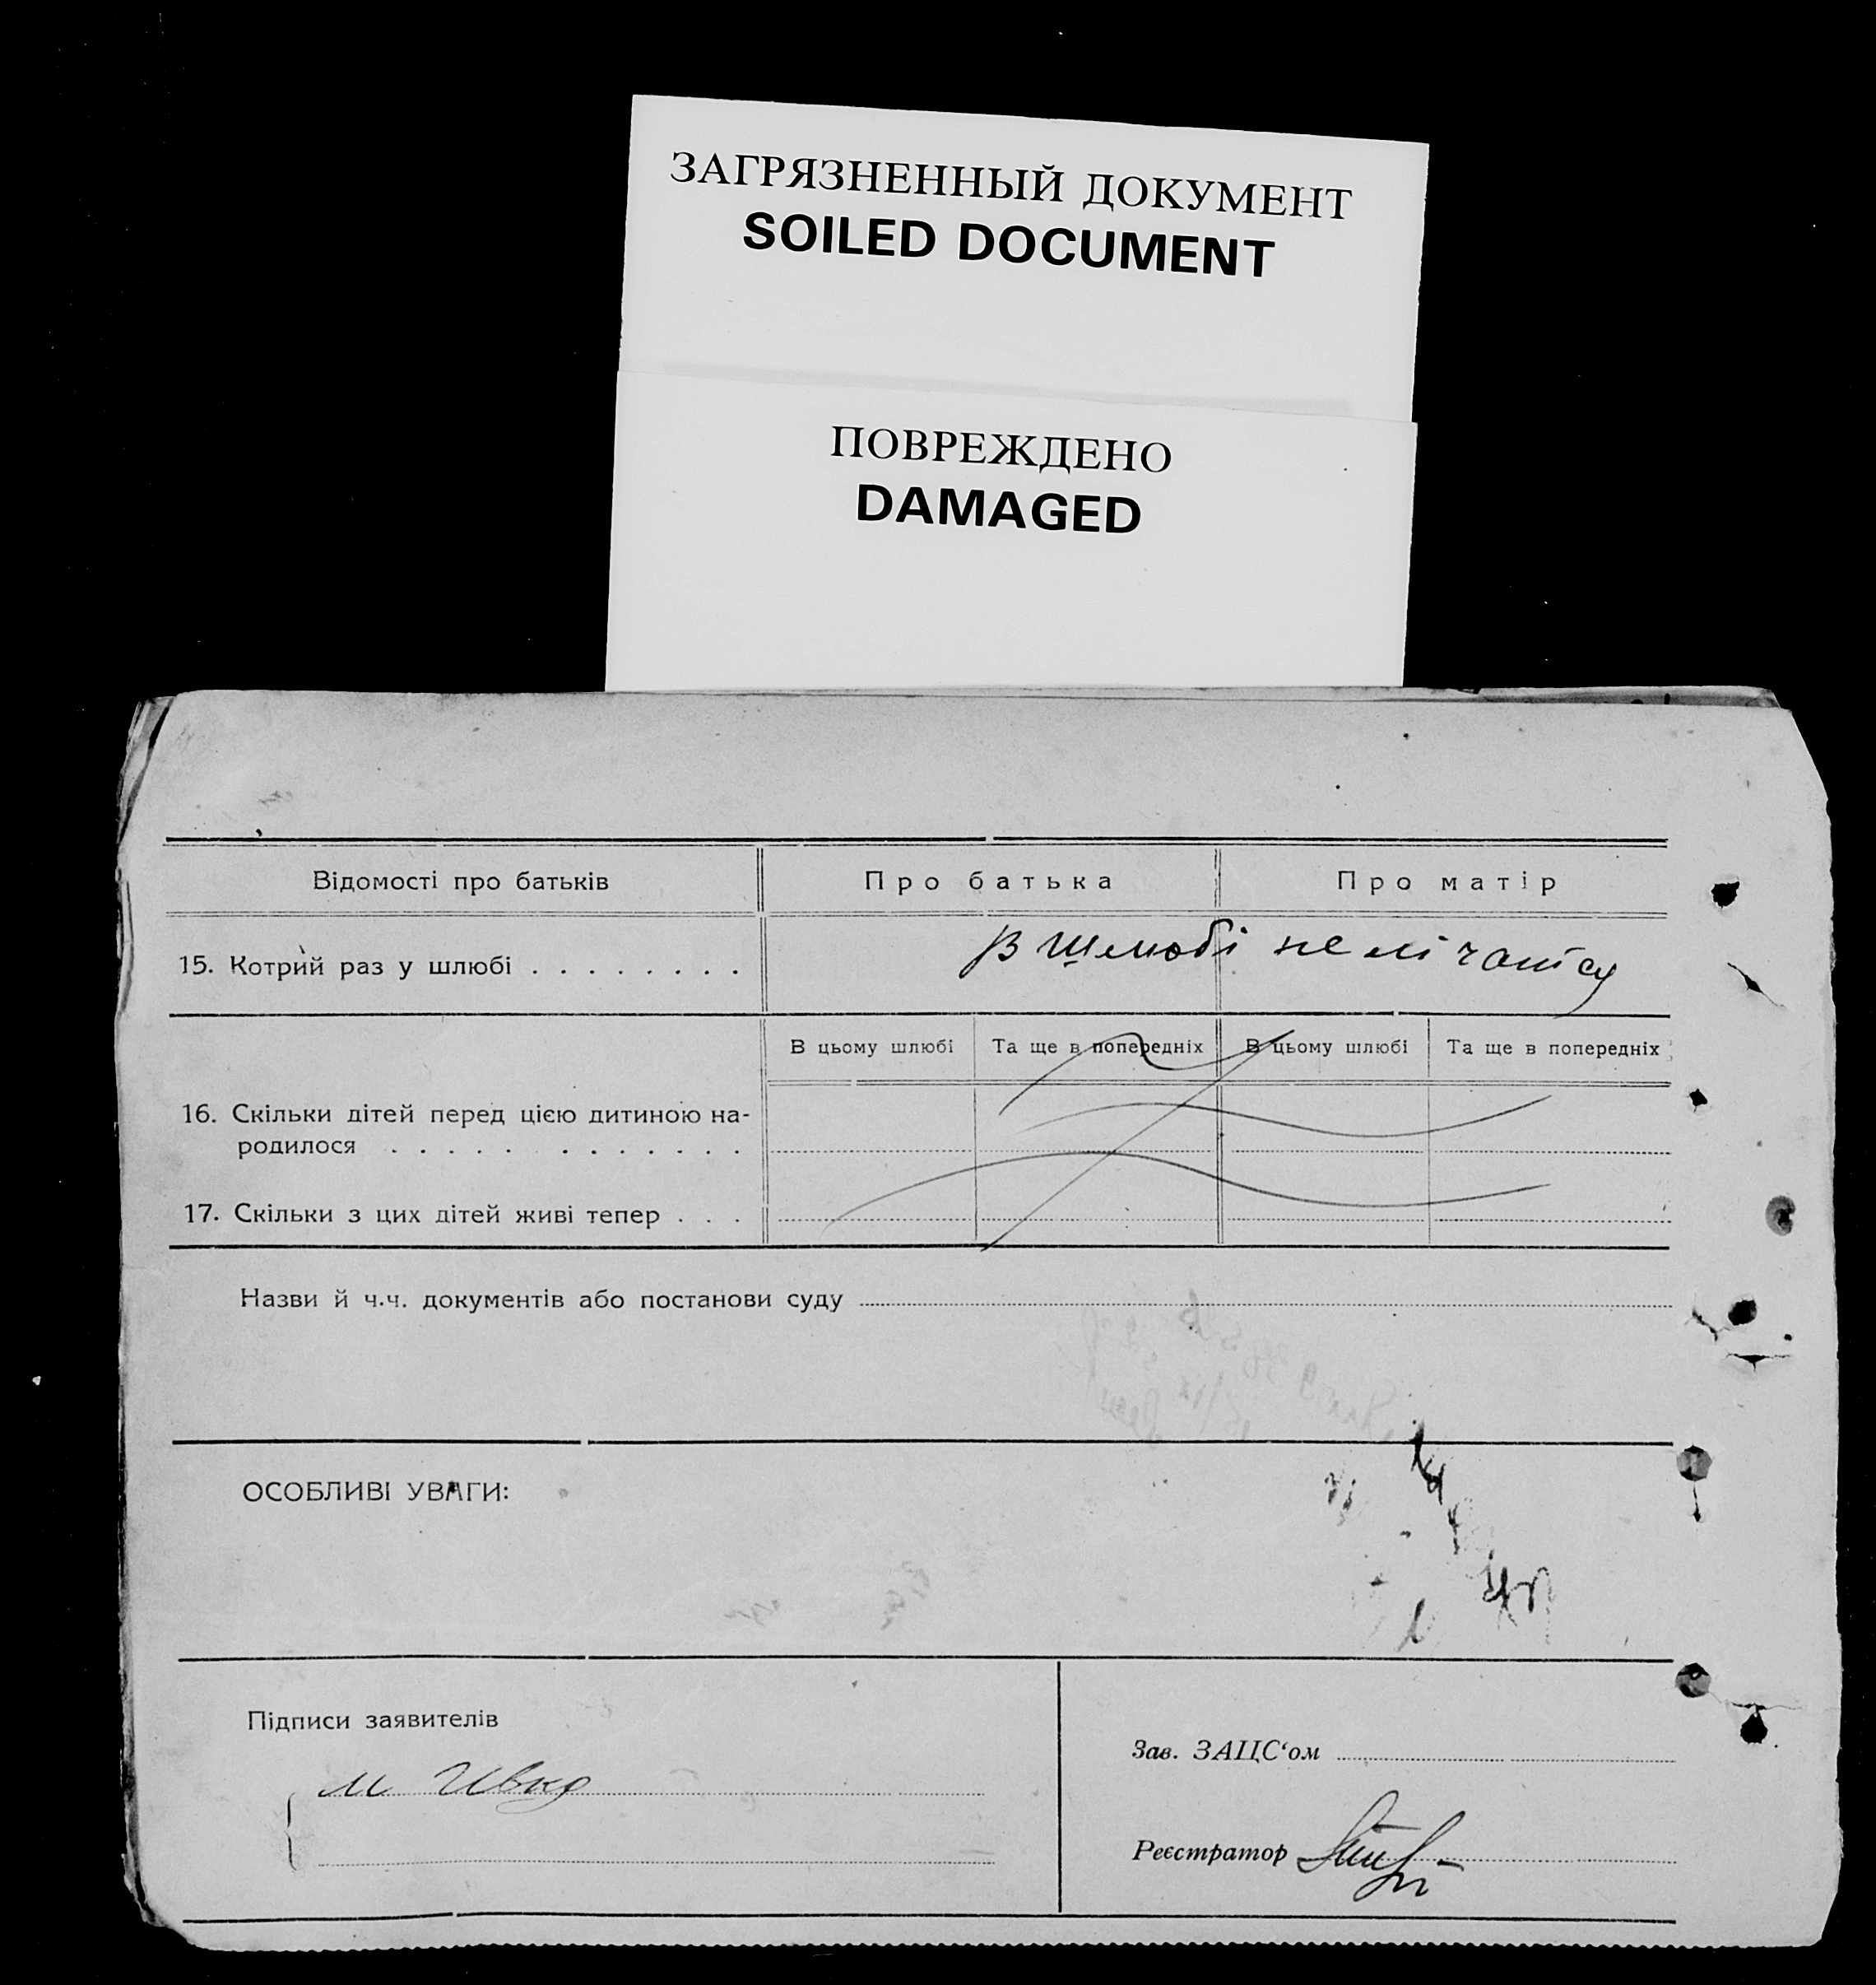 ЗАГРЯЗНЕННЫЙ ДОКУМЕНТ
SOILED DOCUMENT
ПОВРЕЖДЕНО
DAMAGED
Відомості про батьків Про батька Про матір
15. Котрий раз у шлюбі . . . . . . . . В шлюбі не лічаться
В цьому шлюбі Та ще в попередніх В цьому шлюбі Та ще в попередніх
16. Скільки дітей перед цією дитиною на-
родилося . . . . . . . . . . . .
17. Скільки з цих дітей живі тепер . . .
Назви й ч.ч. документів або постанови суду
ОСОБЛИВІ УВАГИ:
Підписи заявителів
Зав. ЗАЦС‘ом
М
Реєстратор